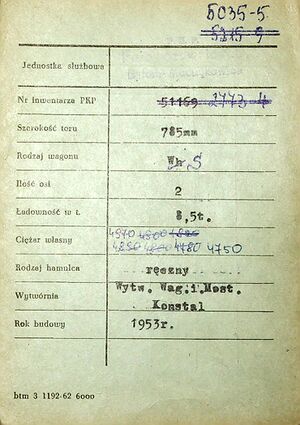 5035-5
5215-9
Jednostka służbowa
Nr inwentarza PKP 51169 2773-4
Szerokość toru 785mm
Rodzaj wagonu Wh S
Ilość osi 2
Ładowność w t. 8,5t.
4870 4800
Ciężar własny 4780 4750
Rodzaj hamulca ręczny
Wytw. Wag.i.Most.
Wytwórnia Konstal
Rok budowy 1953r.
btm 3 1192-62 6000